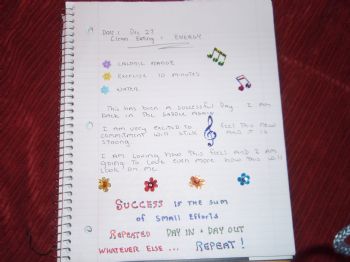 Date: Dec 27
Clean Eating = ENERGY
CALORIE RANGE
EXERCISE 10 MINUTES
WATER
THIS HAS BEEN A SUCCESSFUL DAY. I AM
BACK IN THE SADDLE AGAIN
I AM VERY EXCITED TO FEEL THIS NEW
COMMITMENT WILL STICK AND IT IS
STRONG
I AM LOVING HOW THIS FEELS AND I AM
GOING TO LOVE EVEN MORE HOW THIS WILL
LOOK ON ME
SUCCESS IS THE SUM
OF SMALL EFFORTS
REPEATED DAY IN + DAY OUT
WHATEVER ELSE ... REPEAT!